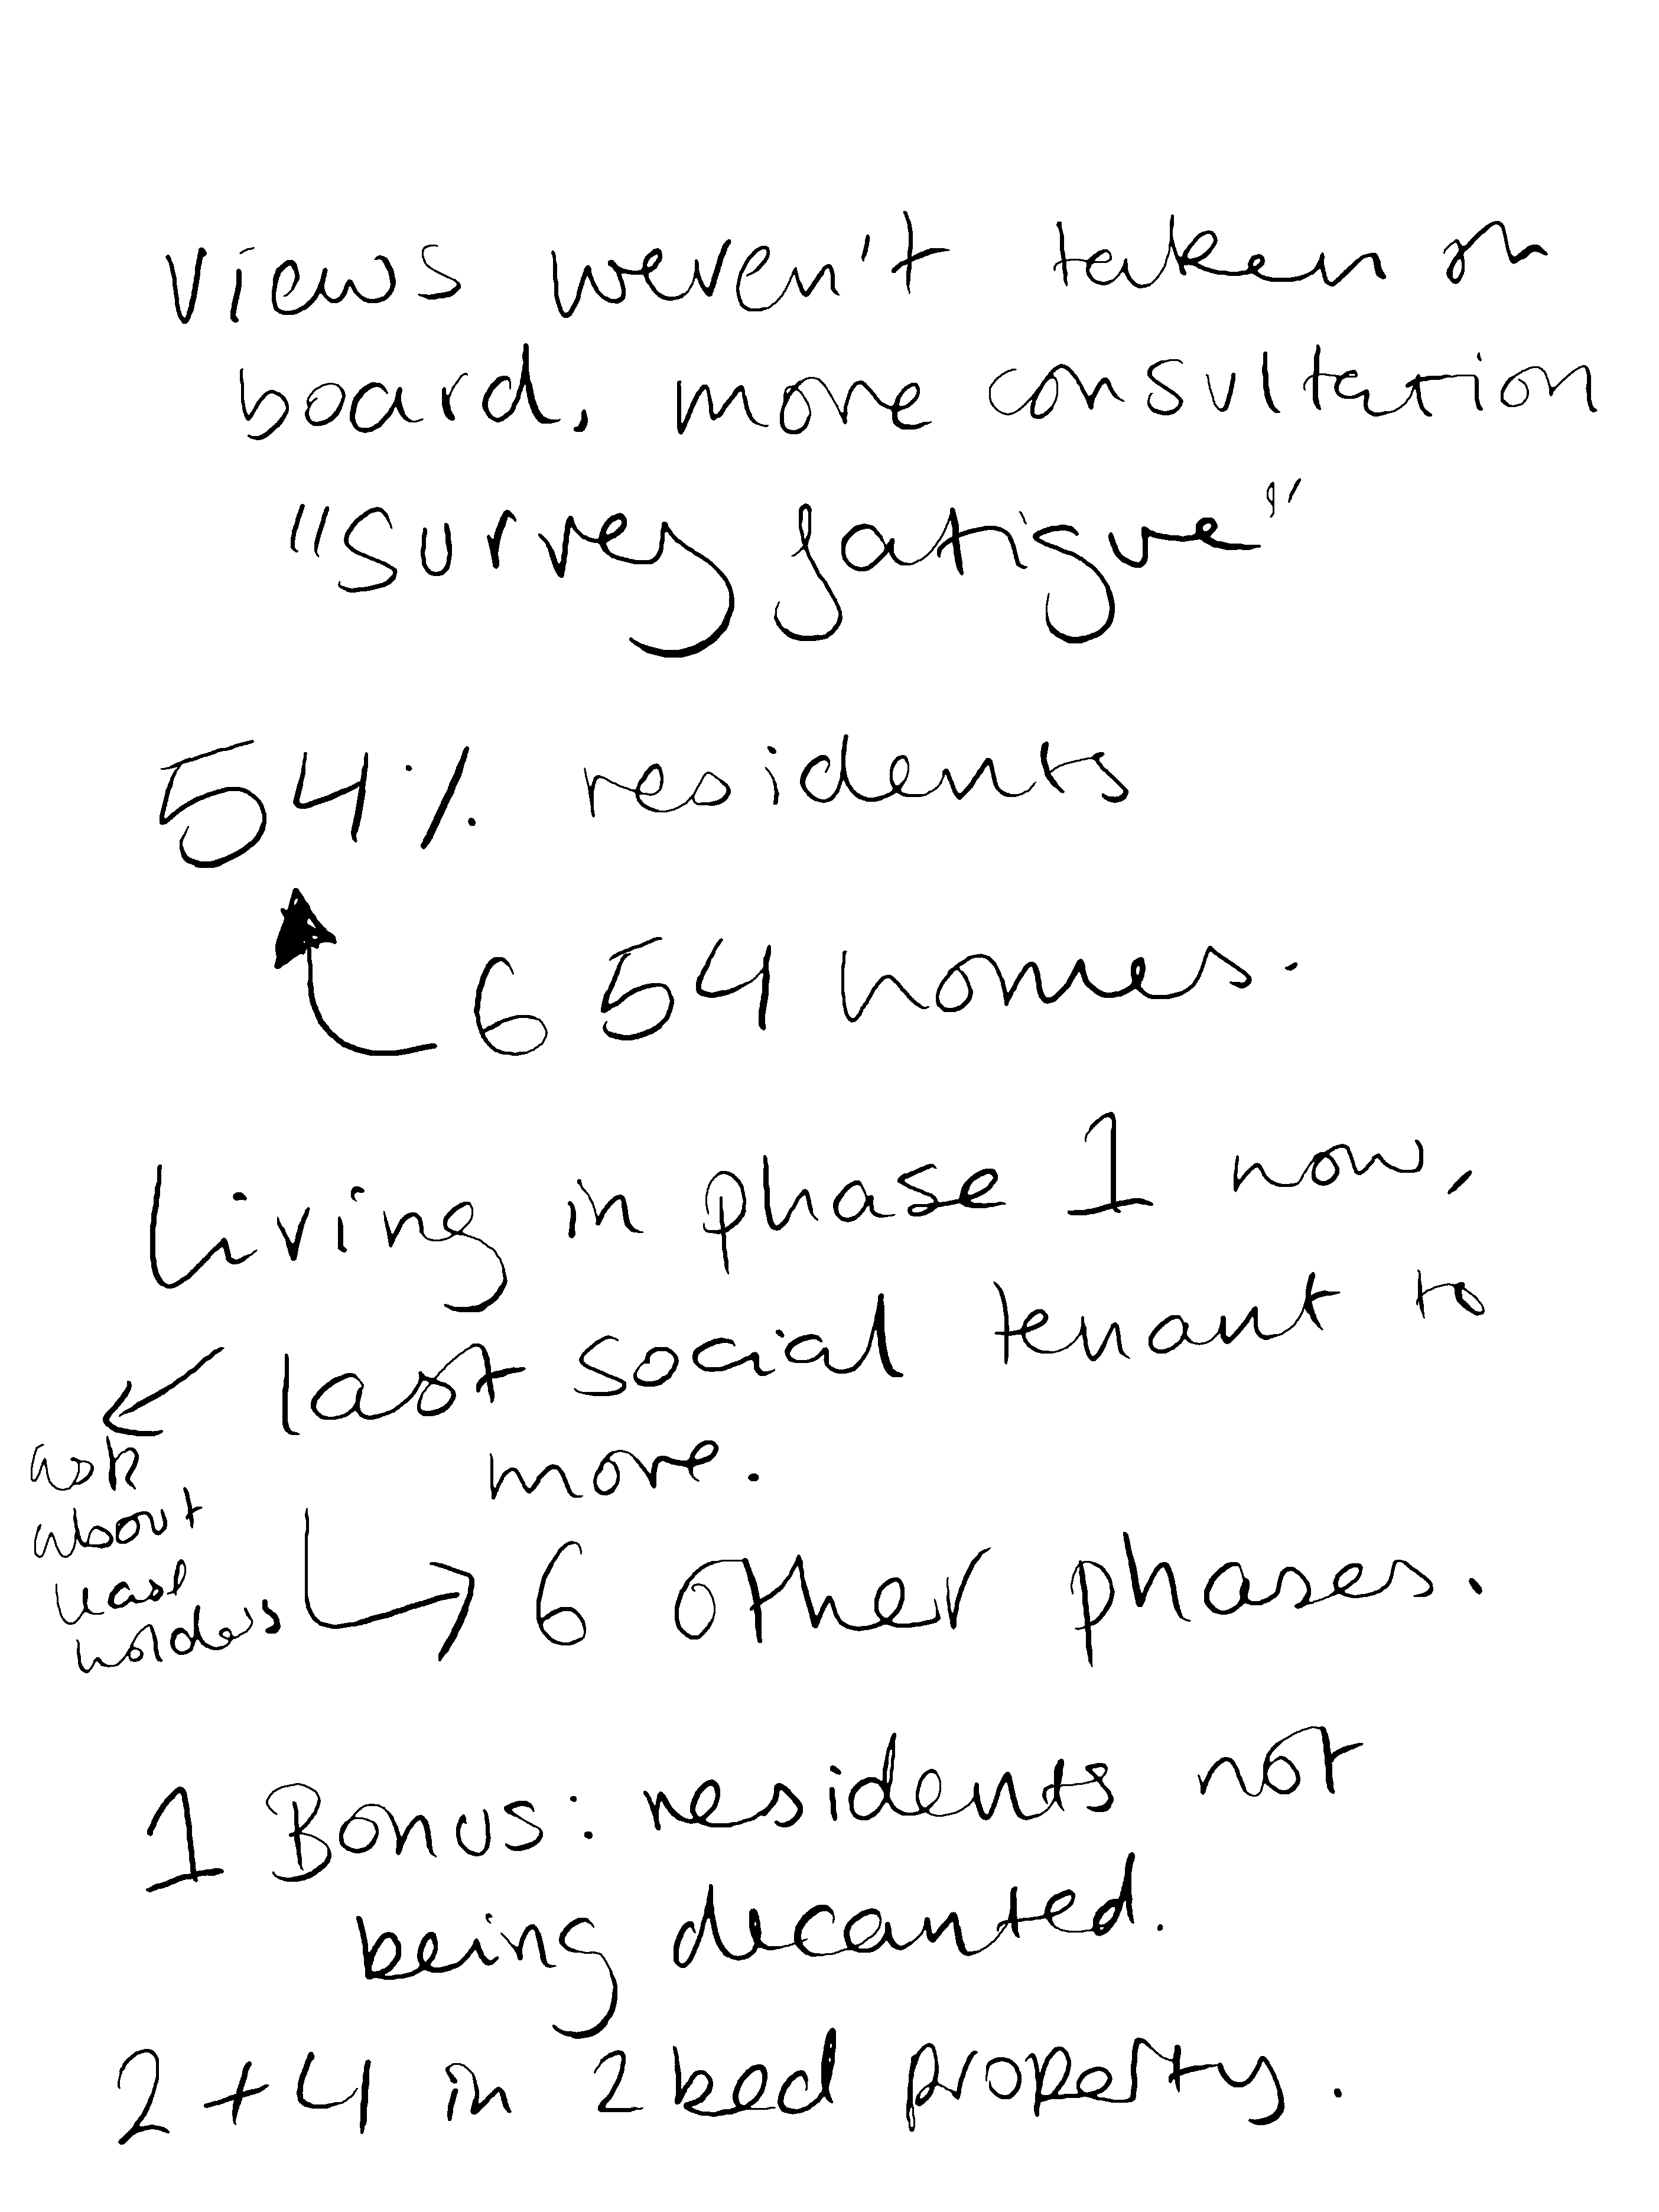 Views weren't taken on
board, more consultation
"survey fatigue"
54% residents
654 homes.
Living in phase 1 now,
last social tenant to
move.
ask
about
lease
holders
6 other phases.
1 Bonus: residents not
being decanted.
2+4 in 2 bed property.